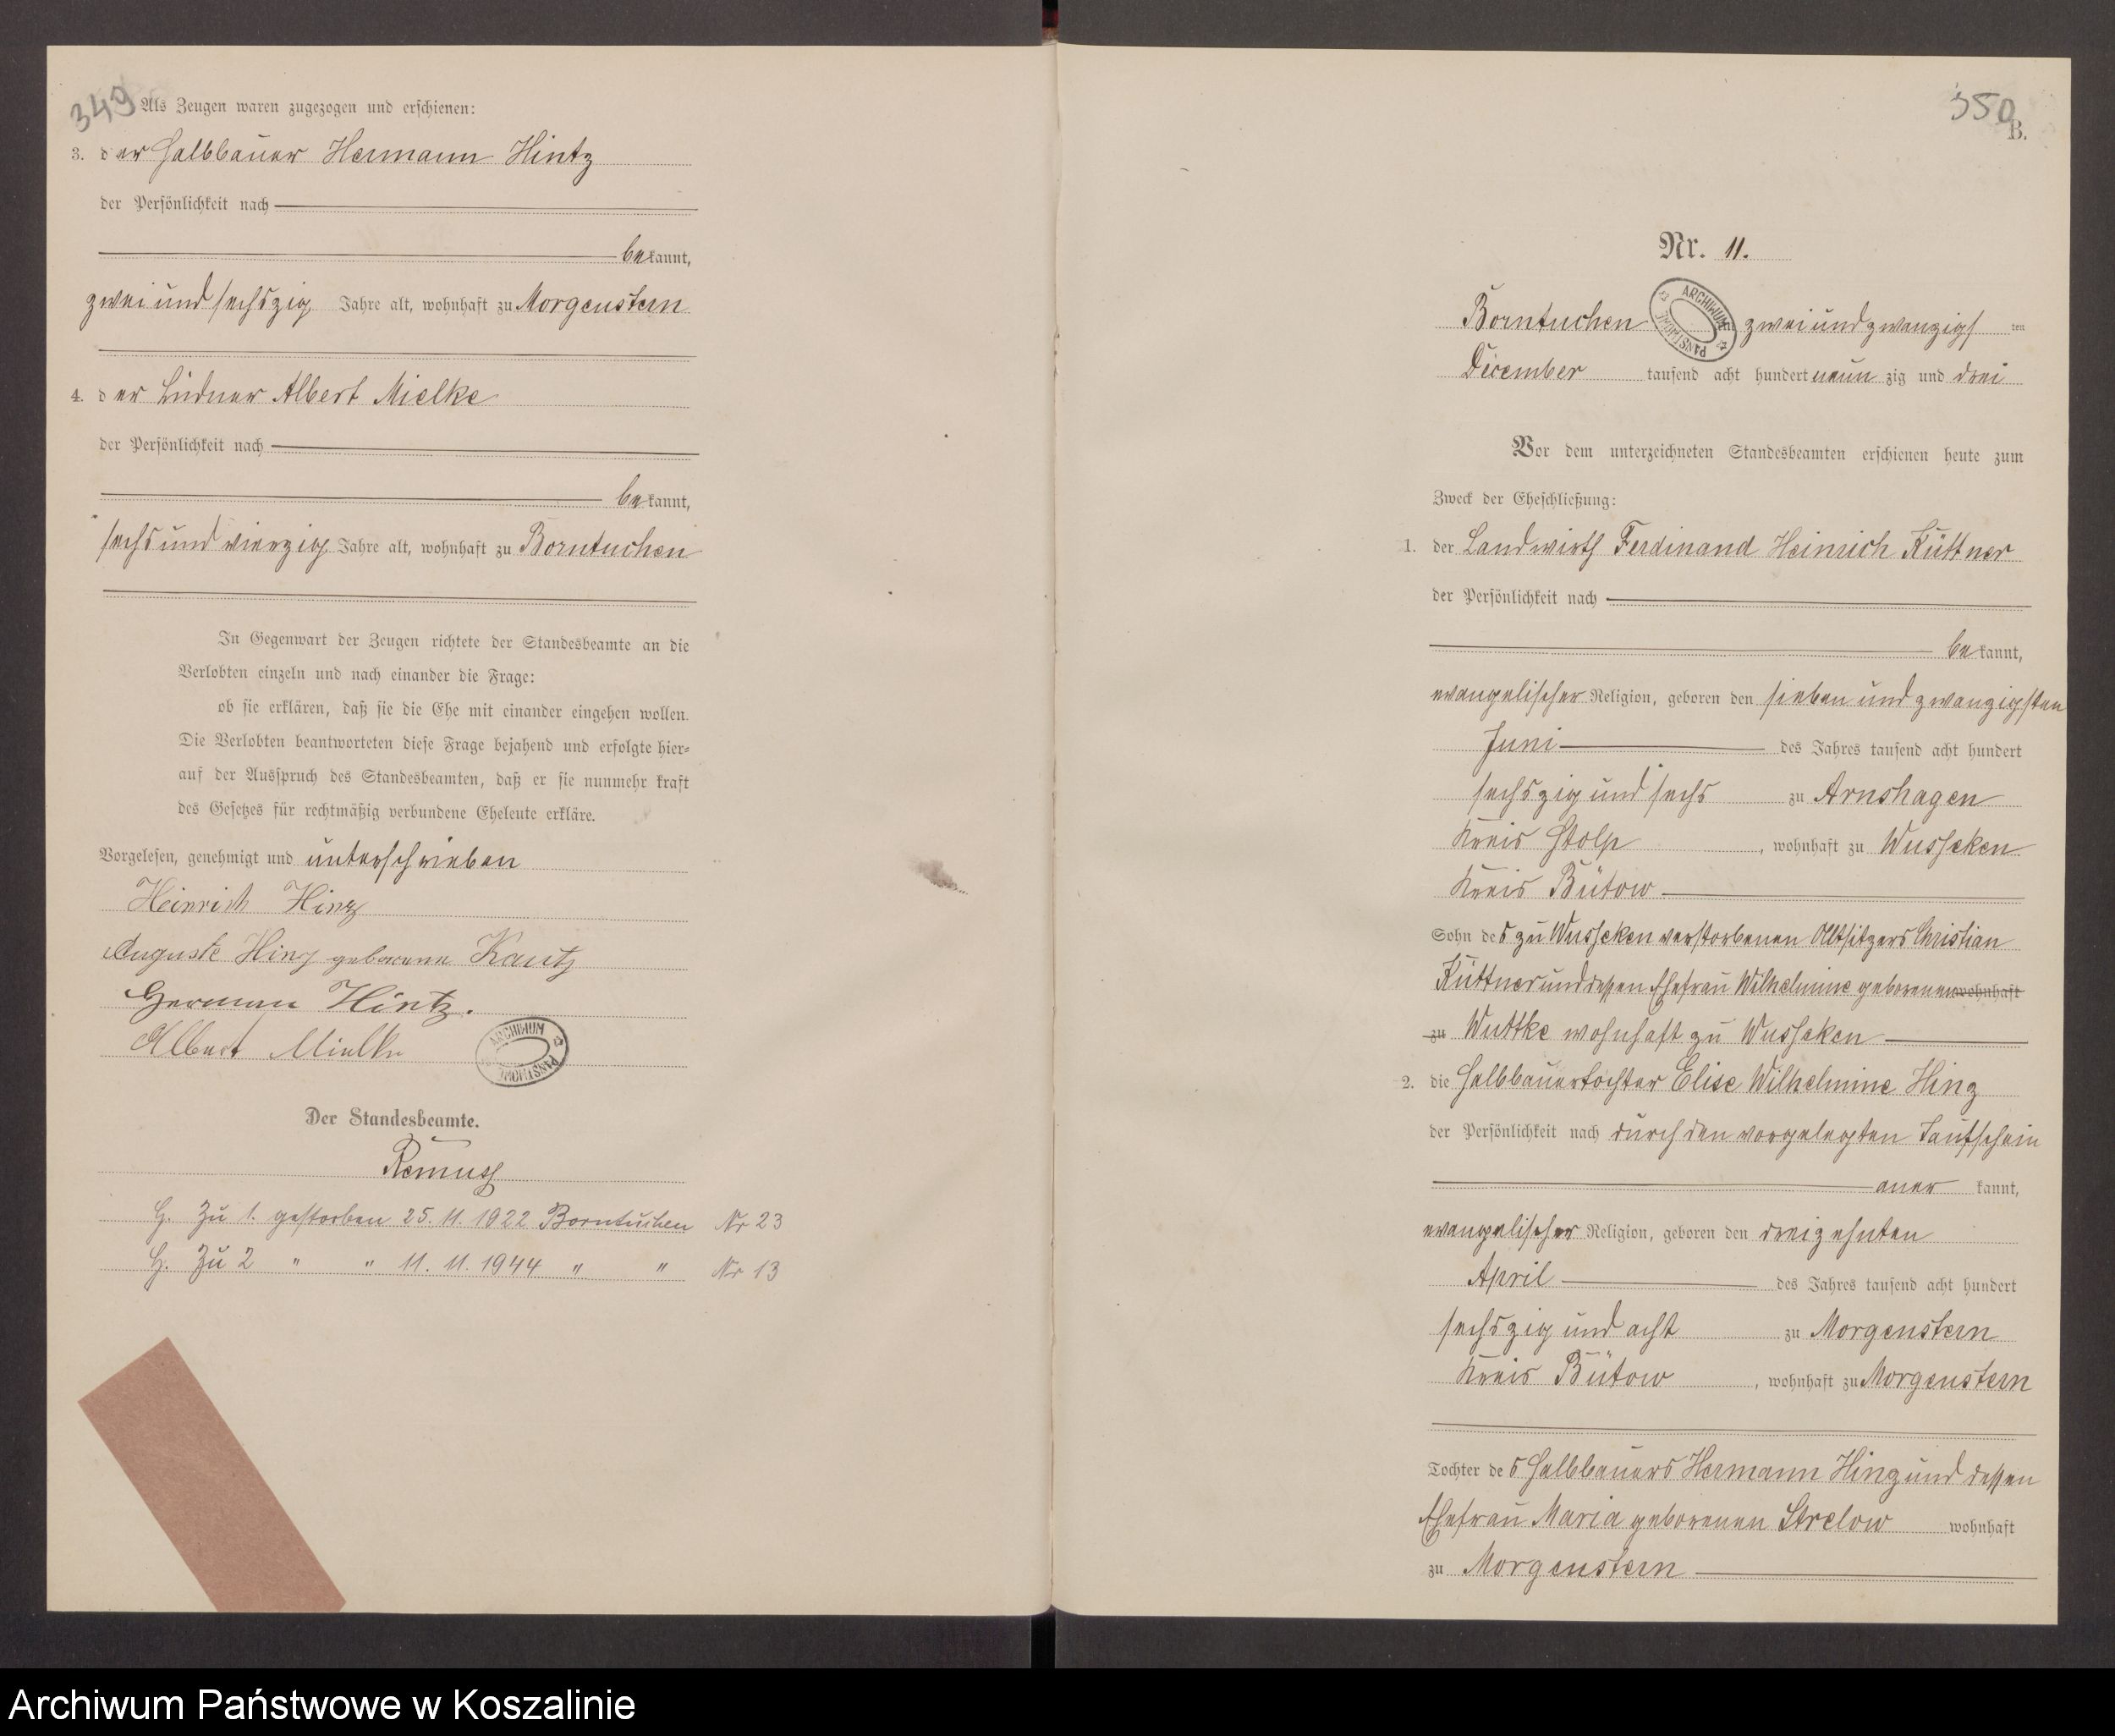 349
Als Zeugen waren zugezogen und erschienen:
3. der Halbbauer Hermann Hintz
der Persönlichkeit nach
bekannt,
zwei und sechszig Jahre alt, wohnhaft zu Morgenstern
4. der Büdner Albert Mielke
der Persönlichkeit nach
bekannt,
sechs und vierzig Jahre alt, wohnhaft zu Borntuchen
In Gegenwart der Zeugen richtete der Standesbeamte an die
Verlobten einzeln und nach einander die Frage:
ob sie erklären, daß sie die Ehe mit einander eingehen wollen.
Die Verlobten beantworteten diese Frage bejahend und erfolgte hier=
auf der Ausspruch des Standesbeamten, daß er sie nunmehr kraft
des Gesetzes für rechtmäßig verbundene Eheleute erkläre.
Vorgelesen, genehmigt und unterschrieben
Heinrich Hinz
Auguste Hinz geborene Kautz
Hermann Hintz.
Albert Mielke
ARCHIWUM PAŃSTWOWE
Der Standesbeamte.
Remus
H. Zu 1. gestorben 25. 11. 1922 Borntuchen Nr 23
H. Zu 2 " " 11. 11. 1944 " " Nr 13
350
B.
Nr. 11.
ARCHIWUM PAŃSTWOWE
Borntuchen zwei und zwanzigsten
December tausend acht hundert neunzig und drei
Vor dem unterzeichneten Standesbeamten erschienen heute zum
Zweck der Eheschließung:
1. der Landwirth Ferdinand Heinrich Küttner
der Persönlichkeit nach
bekannt,
evangelischer Religion, geboren den sieben und zwanzigsten
Juni des Jahres tausend acht hundert
sechszig und sechs zu Arnshagen
Kreis Stolp, wohnhaft zu Wusseken
Kreis Bütow
Sohn des zu Wusseken verstorbenen Altsitzers Christian
Küttner und dessen Ehefrau Wilhelmine geborenen wohnhaft
zu Wuttke wohnhaft zu Wusseken
2. die Halbbauertochter Elise Wilhelmine Hinz
der Persönlichkeit nach durch den vorgelegten Taufschein
anerkannt,
evangelischer Religion, geboren den dreizehnten
April des Jahres tausend acht hundert
sechszig und acht zu Morgenstern
Kreis Bütow, wohnhaft zu Morgenstern
Tochter des Halbbauers Hermann Hinz und dessen
Ehefrau Maria geborenen Strelow wohnhaft
zu Morgenstern
Archiwum Państwowe w Koszalinie